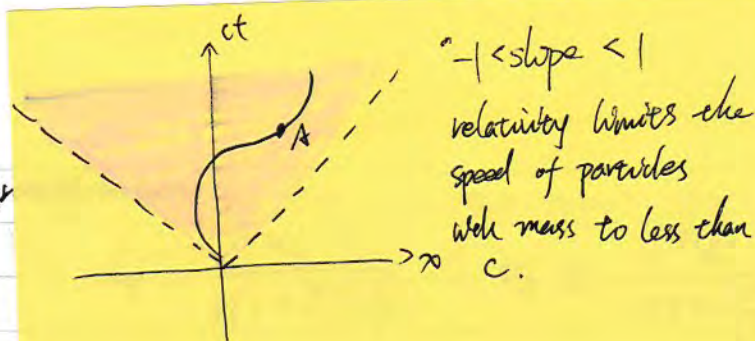 ct
"-1 < slope < 1
relativity limits the
speed of particles
with mass to less than
c.
A
x